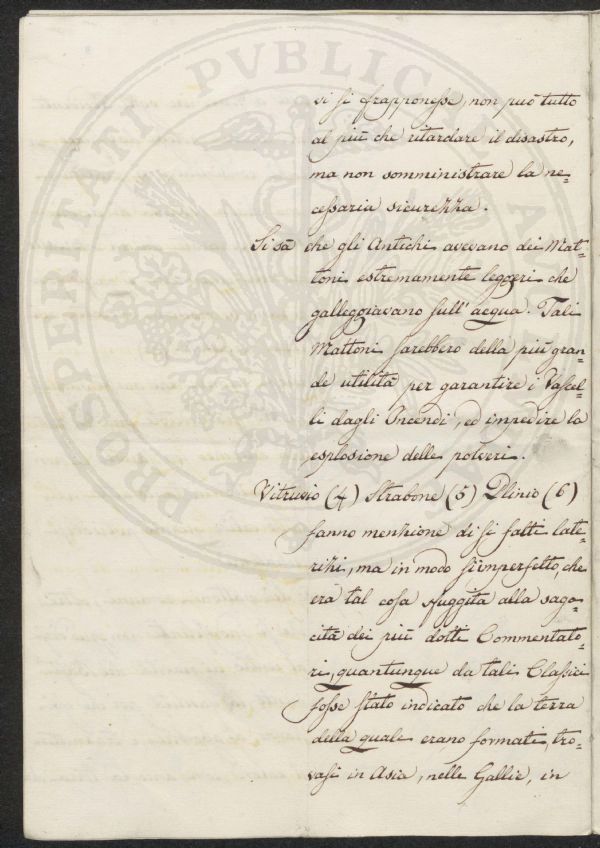 vi si frapponesse, non può tutto
al più che ritardare il disastro,
ma non somministrare la ne=
cessaria sicurezza.
Si sà che gli Antichi avevano dei Mat=
toni estremamente leggeri che
galleggiavano sull' acqua. Tali
Mattoni sarebbero della più gran=
de utilità per garantire i Vascel=
li dagli Incendi, ed impedire la
esplosione delle polveri.
Vitruvio (4) Strabone (5) Plinio (6)
fanno menzione di si fatti late=
rizi, ma in modo si imperfetto, che
era tal cosa sfuggita alla saga=
cità dei più dotti Commentato=
ri, quantunque da tali Classici
fosse stato indicato che la terra
della quale erano formati, tro=
vasi in Asia, nelle Gallie, in
PROSPERITATI PVBLICAE